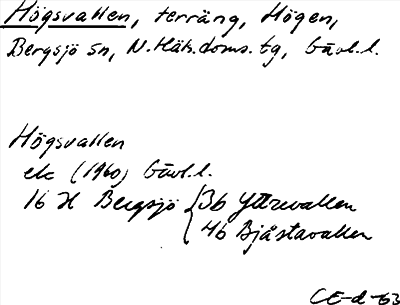 Högsvallen, terräng, Högen,
Bergsjö sn, N. Häls. doms. tg, Gävl. l.
Högsvallen
ek (1960) Gävl. l.
16 H Bergsjö { 3b Yttrevallen
4b Bjåstavallen
CE-d-63